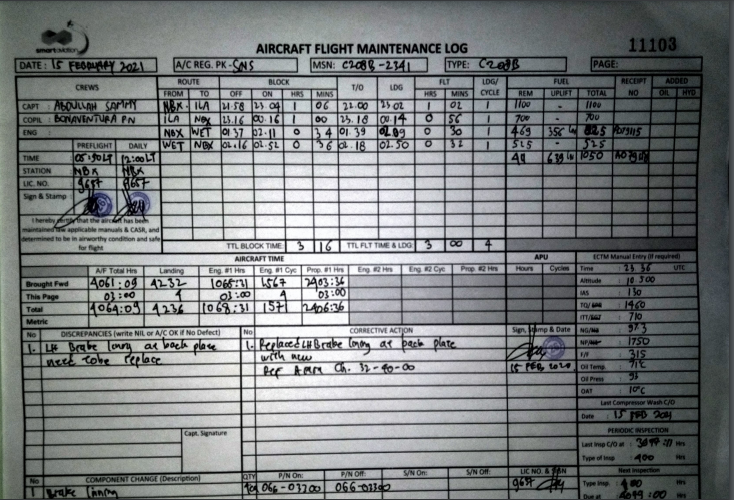 smartaviation
AIRCRAFT FLIGHT MAINTENANCE LOG
11103
DATE: 15 FEBRUARY 2021 A/C REG. PK-SNS MSN: C208B-2341 TYPE: C208B PAGE:
CREWS ROUTE BLOCK T/O LDG FLT LDG/ CYCLE FUEL RECEIPT NO ADDED
FROM TO OFF ON HRS MINS HRS MINS REM UPLIFT TOTAL OIL HYD
CAPT : ABDULLAH SAMMY NBX ILA 21.58 23.04 1 06 22.00 23.02 1 02 1 1100 - 1100
COPIL : BONAVENTURA PN ILA NBX 23.16 00.16 1 00 23.18 00.14 0 56 1 700 - 700
ENG : NBX WET 01.37 02.11 0 34 01.39 02.09 0 30 1 469 356
WET NBX 02.16 02.52 0 36 02.18 02.50 0 32 1 525 - 525
PREFLIGHT DAILY
TIME 05:50LT 12:00LT 1050
STATION NBX NBX
LIC. NO. 9657 9657
Sign & Stamp
I hereby certify that the aircraft has been
maintained iaw applicable manuals & CASR, and
determined to be in airworthy condition and safe
for flight
TTL BLOCK TIME 3 16 TTL FLT TIME & LDG 3 00 4
AIRCRAFT TIME APU ECTM Manual Entry (if required)
A/F Total Hrs Landing Eng. #1 Hrs Eng. #1 Cyc Prop. #1 Hrs Eng. #2 Hrs Eng. #2 Cyc Prop. #2 Hrs Hours Cycles Time : 23.36 UTC
Brought Fwd 4061:09 4232 1065:31 1567 2403:36 Altitude : 10.500
This Page 03:00 4 03:00 4 03:00 IAS : 130
Total 4064:09 4236 1068:31 1571 2406:36 TQ : 1460
Metric ITT : 710
No DISCREPANCIES (write NIL or A/C OK if No Defect) No CORRECTIVE ACTION Sign, Stamp & Date NG : 97.3
1. LH Brake lining at back plate 1. Replaced LH Brake lining at back plate NP : 1750
need to be replace with new F/F : 315
Ref AMM Ch. 32-40-00 15 FEB 2020 Oil Temp : 71°C
Oil Press :
OAT : 10°C
Last Compressor Wash C/O
Date : 15 FEB 2021
Capt. Signature PERIODIC INSPECTION
Last Insp C/O at : Hrs
Type of Insp : 400 Hrs
No COMPONENT CHANGE (Description) QTY P/N On: P/N Off: S/N On: S/N Off: LIC NO. & SIGN Next Inspection
1 Brake lining 066-03300 066-03300 9657 Type Insp. : Hrs
Due at : Hrs